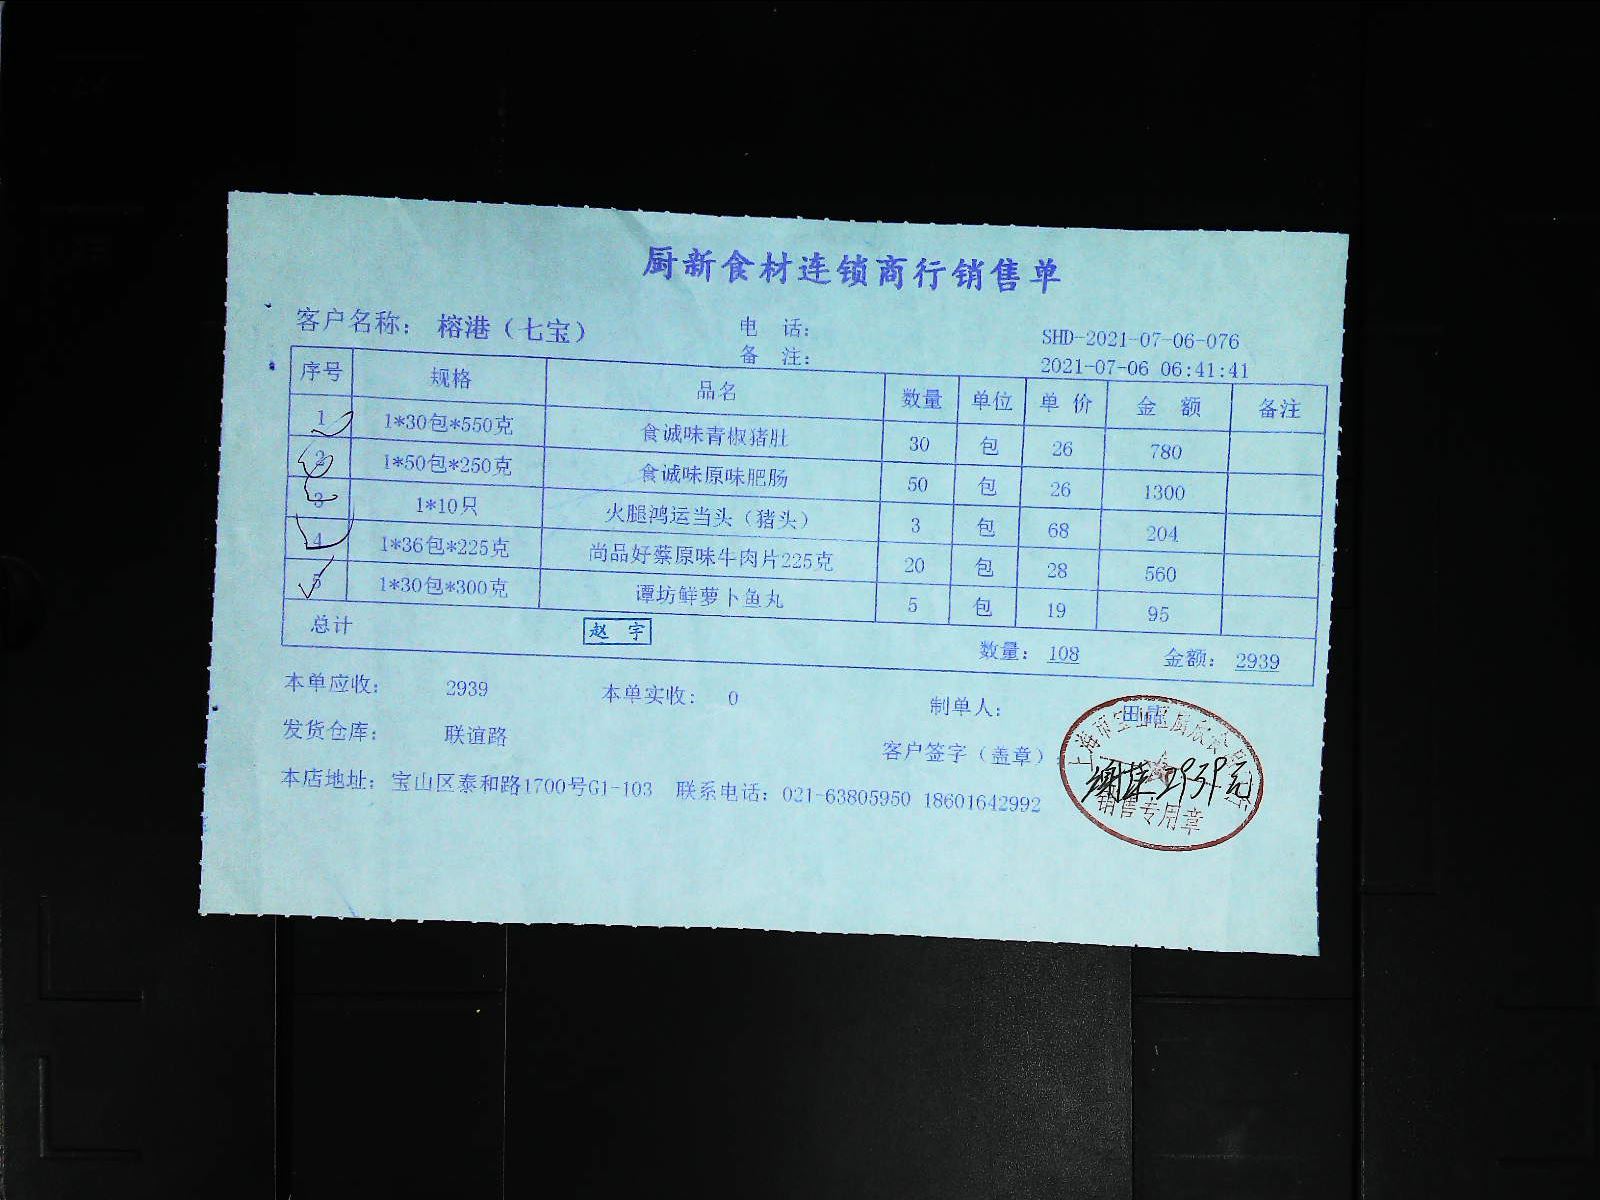 厨新食材连锁商行销售单
客户名称： 榕港（七宝） 电 话： SHD-2021-07-06-076
备 注： 2021-07-06 06:41:41
序号 规格 品名 数量 单位 单 价 金 额 备注
1 1*30包*550克 食诚味青椒猪肚 30 包 26 780
2 1*50包*250克 食诚味原味肥肠 50 包 26 1300
3 1*10只 火腿鸿运当头（猪头） 3 包 68 204
4 1*36包*225克 尚品好蔡原味牛肉片225克 20 包 28 560
5 1*30包*300克 谭坊鲜萝卜鱼丸 5 包 19 95
总计 赵 宇 数量： 108 金额： 2939
本单应收： 2939 本单实收： 0 制单人：
发货仓库： 联谊路 客户签字（盖章）
本店地址：宝山区泰和路1700号G1-103 联系电话：021-63805950 18601642992
2939元
销售专用章